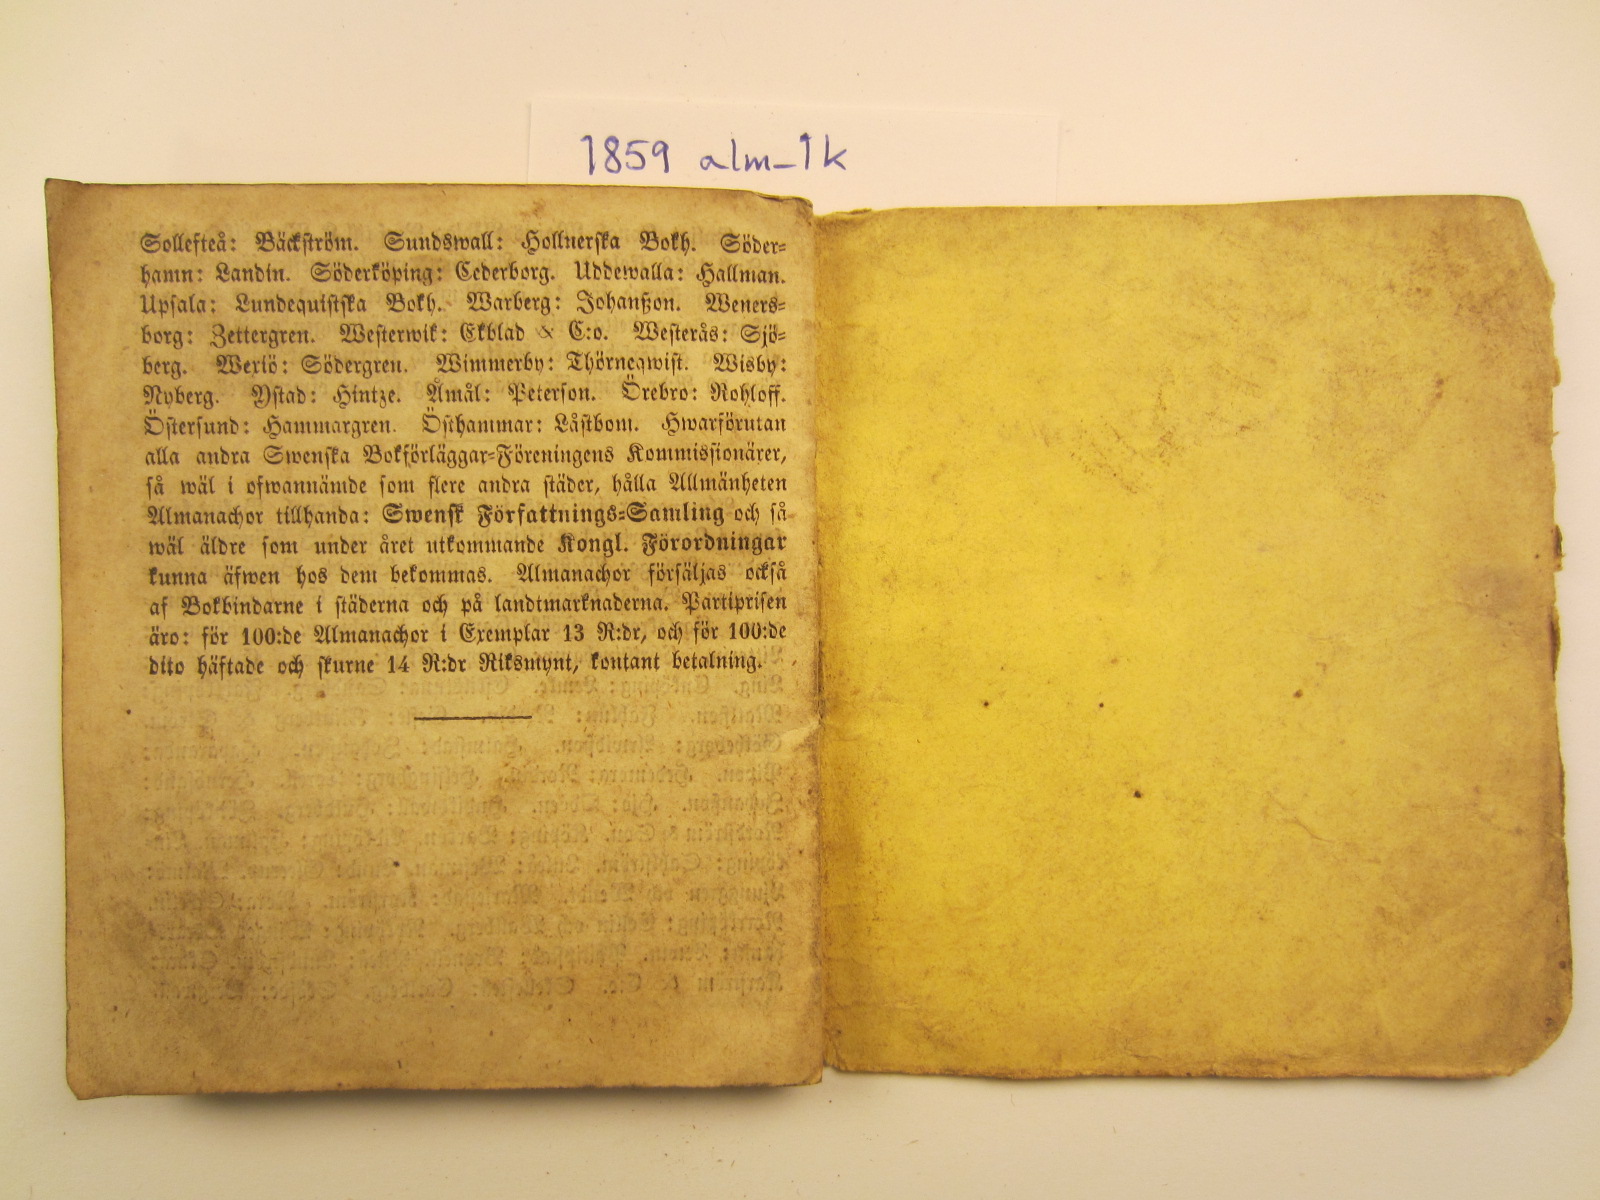 1859 alm_1k
Sollefteå: Bäckström. Sundswall: Hollnerska Bokh. Söder-
hamn: Landin. Söderköping: Cederborg. Uddewalla: Hallman.
Upsala: Lundequistska Bokh. Warberg: Johanßon. Weners-
borg: Zettergren. Westerwik: Ekblad & C:o. Westerås: Sjö-
berg. Wexiö: Södergren. Wimmerby: Thörneqwist. Wisby:
Nyberg. Ystad: Hintze. Åmål: Peterson. Örebro: Rohloff.
Östersund: Hammargren. Östhammar: Låstbom. Hwarförutan
alla andra Swenska Bokförläggar-Föreningens Kommissionärer,
så wäl i ofwannämde som flere andra städer, hålla Allmänheten
Almanachor tillhanda: Swensk Författnings-Samling och så
wäl äldre som under året utkommande Kongl. Förordningar
kunna äfwen hos dem bekommas. Almanachor försäljas också
af Bokbindarne i städerna och på landtmarknaderna. Partiprisen
äro: för 100:de Almanachor i Exemplar 13 R:dr, och för 100:de
dito häftade och skurne 14 R:dr Riksmynt, kontant betalning.